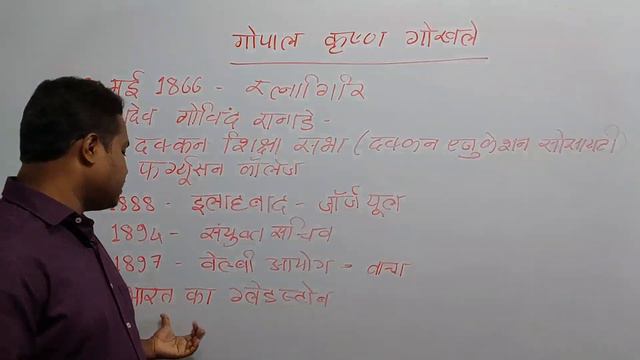 गोपाल कृष्ण गोखले
मई 1866 - रत्नागिरि
गोविंद रानाडे -
दक्कन शिक्षा सभा (दक्कन एजुकेशन सोसायटी)
फर्ग्यूसन कॉलेज
1888 - इलाहबाद - जॉर्ज यूल
1894 - संयुक्त सचिव
1897 - वेल्बी आयोग - वाचा
भारत का ग्लेडस्टोन